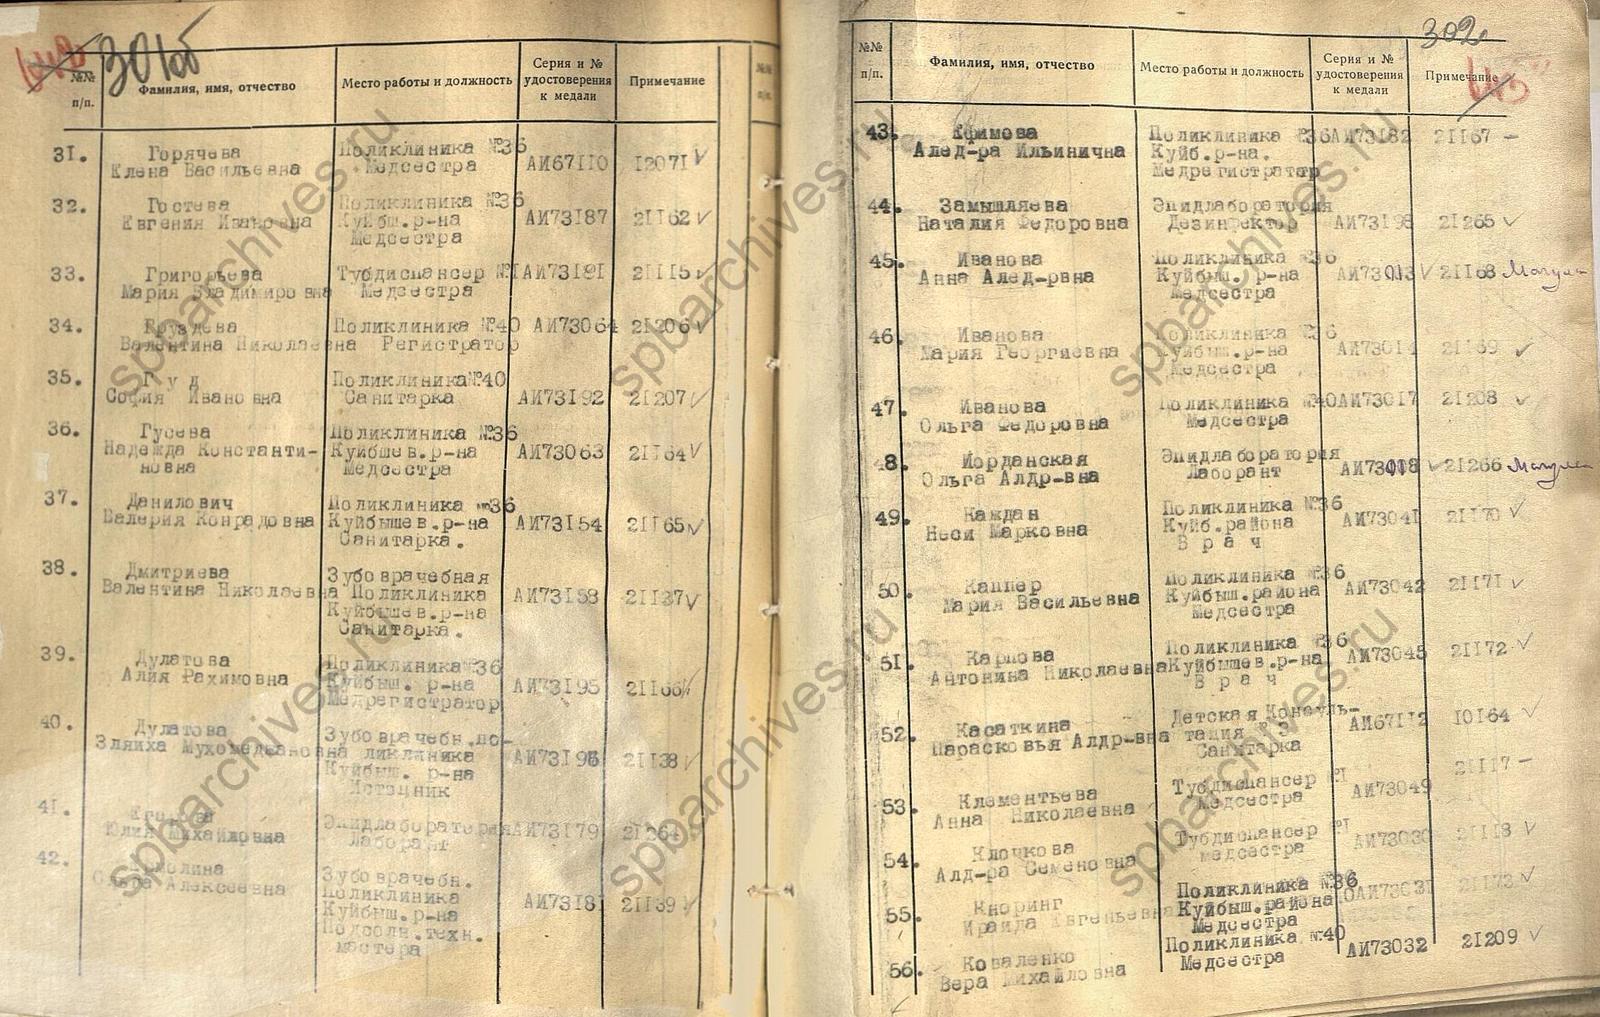 301об
№№ п/п.
Фамилия, имя, отчество
Место работы и должность
Серия и № удостоверения к медали
Примечание
31. Горячева Поликлиника №36
Елена Васильевна Медсестра АИ67110 12071 ✓
32. Гостева Поликлиника №36
Евгения Ивановна Куйбыш.р-на АИ73187 21162 ✓
Медсестра
33. Григорьева Тубдиспансер №1 АИ73191 21115 ✓
Мария Владимировна Медсестра
34. Груздева Поликлиника №40 АИ73064 21206 ✓
Валентина Николаевна Регистратор
35. Г у д Поликлиника №40
София Ивановна Санитарка АИ73192 21207 ✓
36. Гусева Поликлиника №36
Надежда Константи- Куйбшев.р-на АИ73063 21164 ✓
новна Медсестра
37. Данилович Поликлиника №36
Валерия Конрадовна Куйбышев.р-на АИ73154 21165 ✓
Санитарка.
38. Дмитриева Зубоврачебная
Валентина Николаевна Поликлиника АИ73158 21137 ✓
Куйбышев.р-на
Санитарка.
39. Дулатова Поликлиника №36
Алия Рахимовна Куйбыш. р-на АИ73195 21166 ✓
Медрегистратор
40. Дулатова Зубоврачебн.по-
ликлиника АИ73196 21138 ✓
Куйбыш. р-на
Истопник
41. Эпидлаборатория АИ73179 21264
Юлия Михайловна Лаборант
42. Зубоврачебн.
Ольга Алексеевна Поликлиника АИ73181 21139 ✓
Куйбыш.р-на
техн.
мастера
302
№№ п/п.
Фамилия, имя, отчество
Место работы и должность
Серия и № удостоверения к медали
Примечание
43. Ефимова Поликлиника №36 АИ73182 21167 –
Алед-ра Ильинична Куйб.р-на.
Медрегистратор
44. Замышляева Эпидлаборатория
Наталия Федоровна Дезинфектор АИ73198 21265 ✓
45. Иванова Поликлиника №36
Анна Алед-рвна Куйбыш.р-на АИ73013 ✓ 21168
Медсестра
46. Иванова Поликлиника №36
Мария Георгиевна Куйбыш.р-на АИ73014 21169 ✓
Медсестра
47. Иванова Поликлиника №40 АИ73017 21208 ✓
Ольга Федоровна Медсестра
48. Иорданская Эпидлаборатория
Ольга Алдр-вна Лаборант АИ73018 ✓ 21266
49. Каждан Поликлиника №36
Неси Марковна Куйб.района АИ73041 21170 ✓
В р а ч
50. Каппер Поликлиника №36
Мария Васильевна Куйбыш.района АИ73042 21171 ✓
Медсестра
51. Карпова Поликлиника №36
Антонина Николаевна Куйбышев.р-на АИ73045 21172 ✓
В р а ч
52. Касаткина Детская Консуль-
Парасковья Алдр-вна тация 3 АИ67112 10164 ✓
Санитарка
53. Клементьева Тубдиспансер №1 АИ73049 21117 –
Анна Николаевна Медсестра
54. Клочкова Тубдиспансер №1 АИ73030 21118 ✓
Алд-ра Семеновна Медсестра
55. Кноринг Поликлиника №36 АИ73031 21173 ✓
Ираида Евгеньевна Куйбыш.района
Медсестра
56. Коваленко Поликлиника №40 АИ73032 21209 ✓
Вера Михайловна Медсестра
spbarchives.ru
spbarchives.ru
spbarchives.ru
spbarchives.ru
spbarchives.ru
spbarchives.ru